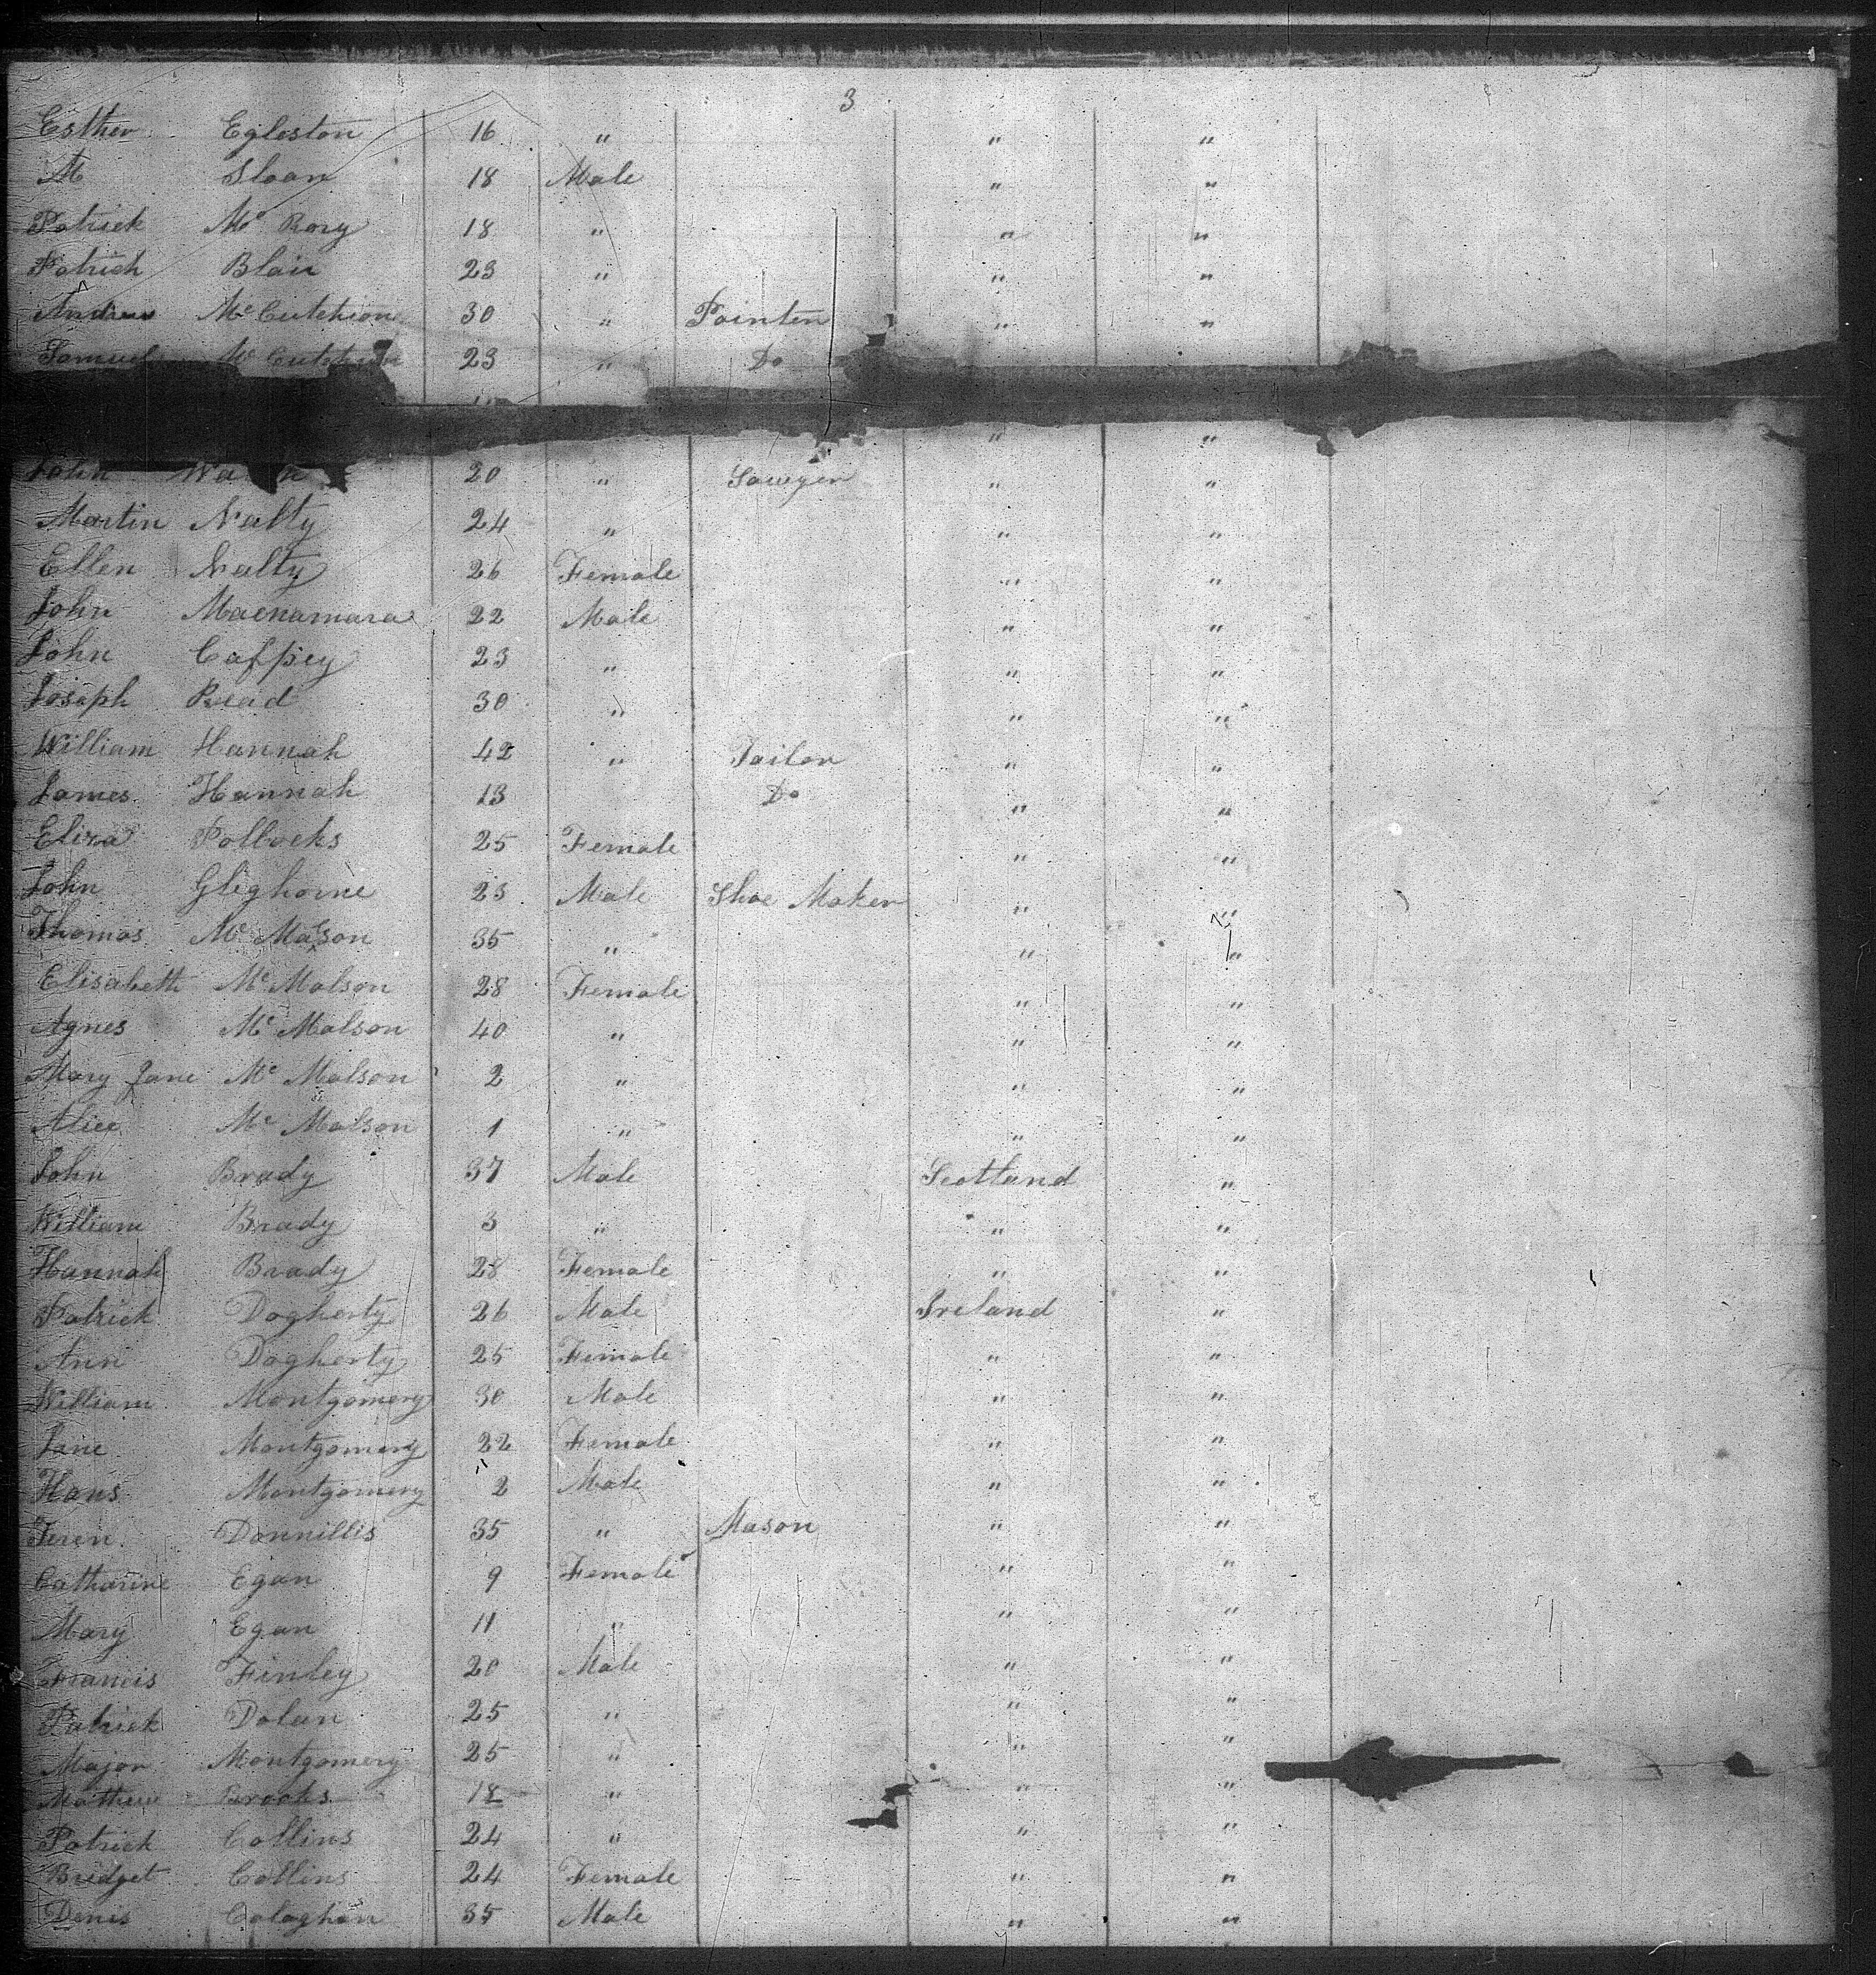 3
Esther Egleston 16 " " "
M Sloan 18 Male " "
Patrick Mc Rory 18 " " "
Patrick Blair 23 " " "
Andrew Mc Cutchion 30 " Painter " "
Samuel Mc Cutchion 23 " Do
" "
John 20 " Sawyer " "
Martin Nalty 24 " " "
Ellen Nalty 26 Female " "
John Macnamara 22 Male " "
John Caffrey 23 " " "
Joseph Read 30 " " "
William Hannah 42 " Tailor " "
James Hannah 13 Do " "
Eliza Pollocks 25 Female " "
John Gleghorne 23 Male Shoe Maker " "
Thomas Mc Malson 35 " " "
Elisabeth Mc Malson 28 Female " "
Agnes Mc Malson 40 " " "
Mary Jane Mc Malson 2 " " "
Alice Mc Malson 1 " " "
John Brady 37 Male Scotland "
William Brady 3 " " "
Hannah Brady 28 Female " "
Patrick Dogherty 26 Male Ireland "
Ann Dogherty 25 Female " "
William Montgomery 30 Male " "
Jane Montgomery 22 Female " "
Hans Montgomery 2 Male " "
Teren Donnillis 35 " Mason " "
Catharine Egan 9 Female " "
Mary Egan 11 " " "
Francis Finley 20 Male " "
Patrick Dolan 25 " " "
Major Montgomery 25 " " "
Mathew Brooks 18 " " "
Patrick Collins 24 " " "
Bridget Collins 24 Female " "
Denis Calaghan 35 Male " "